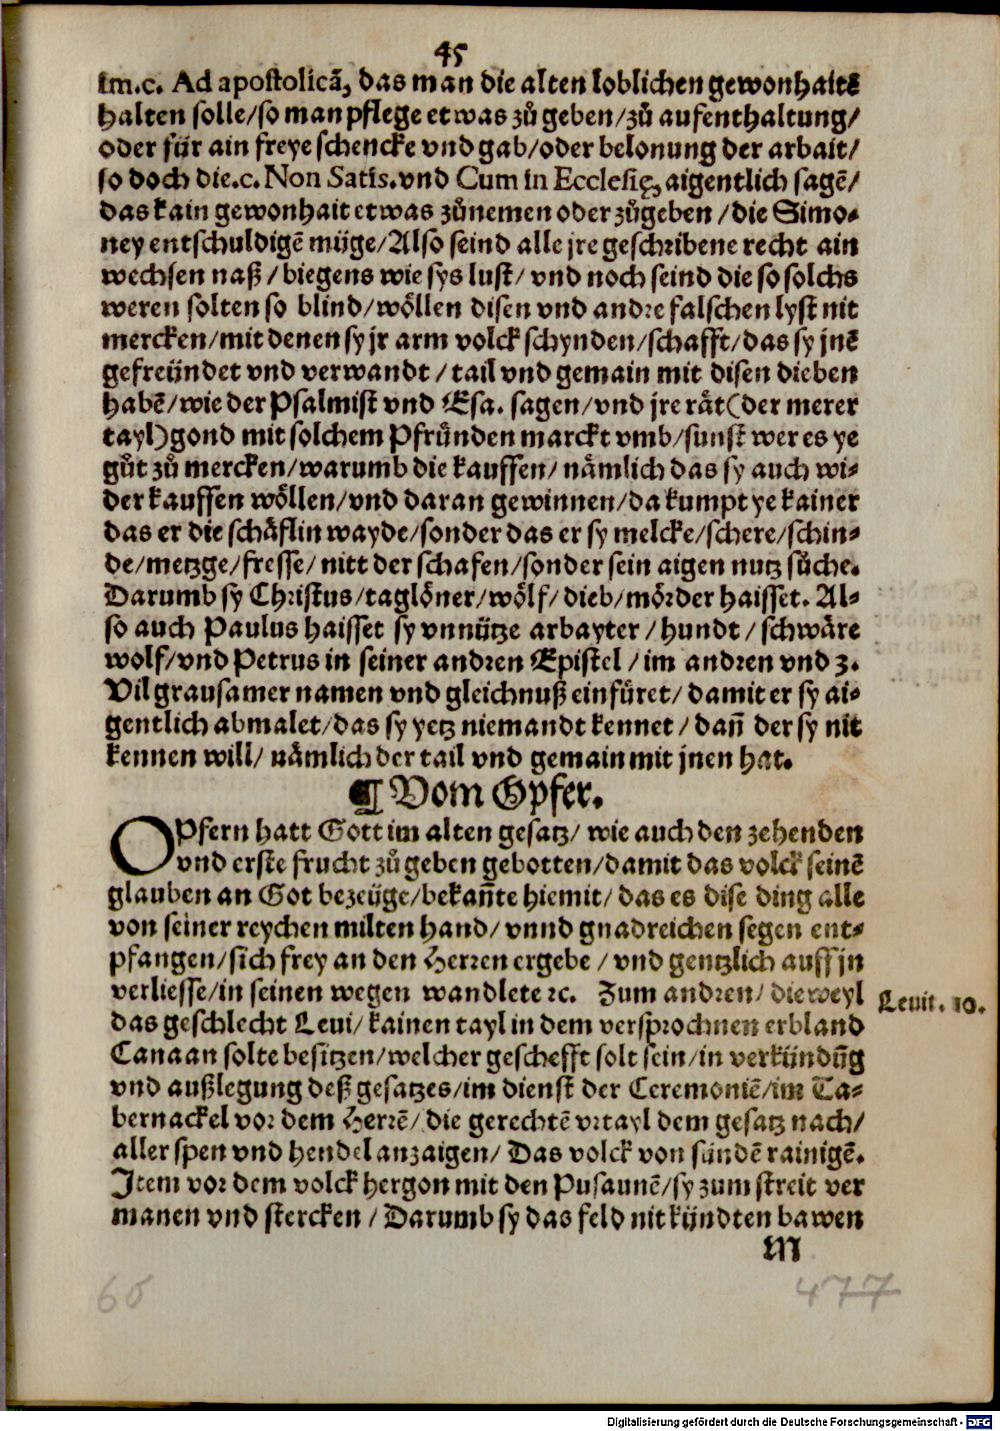 45
im.c. Ad apostolicã, das man die alten loblichen gewonhaitẽ
halten solle/so man pflege etwas zů geben/zů aufenthaltung/
oder für ain freye schencke vnd gab/oder belonung der arbait/
so doch die.c. Non Satis.vnd Cum in Ecclesię, aigentlich sagẽ/
das kain gewonhait etwas zůnemen oder zůgeben/die Simo-
ney entschuldigẽ müge/Also seind alle jre geschribene recht ain
wechsen naß/biegens wie sys lust/vnd noch seind die so solchs
weren solten so blind/wöllen disen vnd andre falschen lyst nit
mercken/mit denen sy jr arm volck schynden/schafft/das sy jnẽ
gefreündet vnd verwandt/tail vnd gemain mit disen dieben
habẽ/wie der Psalmist vnd Esa. sagen/vnd jre rät(der merer
tayl)gond mit solchem Pfründen marckt vmb/sunst wer es ye
gůt zů mercken/warumb die kauffen/nämlich das sy auch wi-
der kauffen wöllen/vnd daran gewinnen/da kumpt ye kainer
das er die schäflin wayde/sonder das er sy melcke/schere/schin-
de/metzge/fresse/nitt der schafen/sonder sein aigen nutz sůche.
Darumb sy Christus/taglöner/wölf/dieb/mörder haisset. Al-
so auch Paulus haisset sy vnnütze arbayter/hundt/schwäre
wolf/vnd Petrus in seiner andren Epistel/im andren vnd 3.
Vil grausamer namen vnd gleichnuß einfüret/damit er sy ai-
gentlich abmalet/das sy yetz niemandt kennet/dañ der sy nit
kennen will/nämlich der tail vnd gemain mit jnen hat.
¶ Vom Opfer.
OPfern hatt Gott im alten gesatz/wie auch den zehenden
vnd erste frucht zů geben gebotten/damit das volck seinẽ
glauben an Got bezeüge/bekañte hiemit/das es dise ding alle
von seiner reychen milten hand/vnnd gnadreichen segen ent-
pfangen/sich frey an den Herren ergebe/vnd gentzlich auff jn
verliesse/in seinen wegen wandlete ꝛc. Zum andren/dieweyl
Leuit. 10.
das geschlecht Leui/kainen tayl in dem versprochnen erbland
Canaan solte besitzen/welcher geschefft solt sein/in verkündũg
vnd außlegung deß gesatzes/im dienst der Ceremoniẽ/im Ta-
bernackel vor dem Herrẽ/die gerechtẽ vrtayl dem gesatz nach/
aller spen vnd hendel anzaigen/Das volck von sündẽ rainigẽ.
Item vor dem volck hergon mit den Pusaunẽ/sy zum streit ver
manen vnd stercken/Darumb sy das feld nit kündten bawen
M
66
477
Digitalisierung gefördert durch die Deutsche Forschungsgemeinschaft - DFG